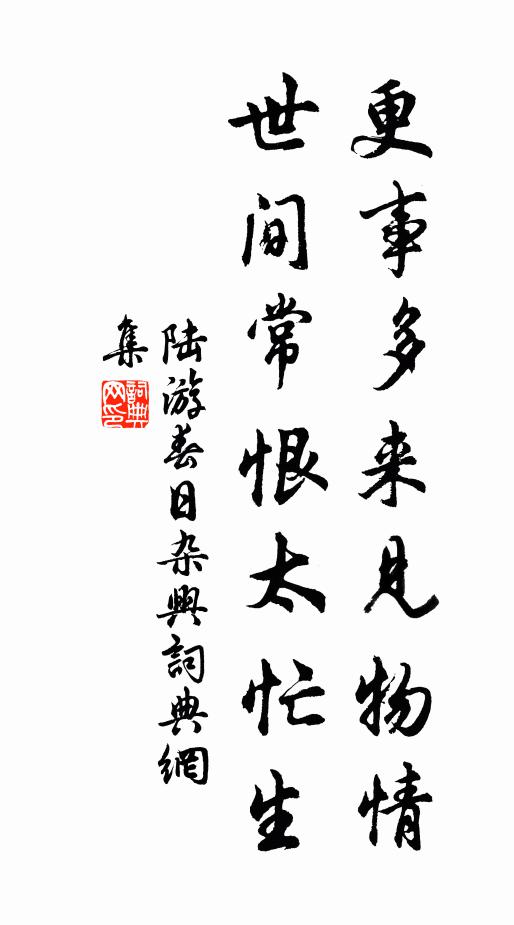 更事多来见物情
世间常恨太忙生
陆游春日杂興詞典網
集
詞典
网印